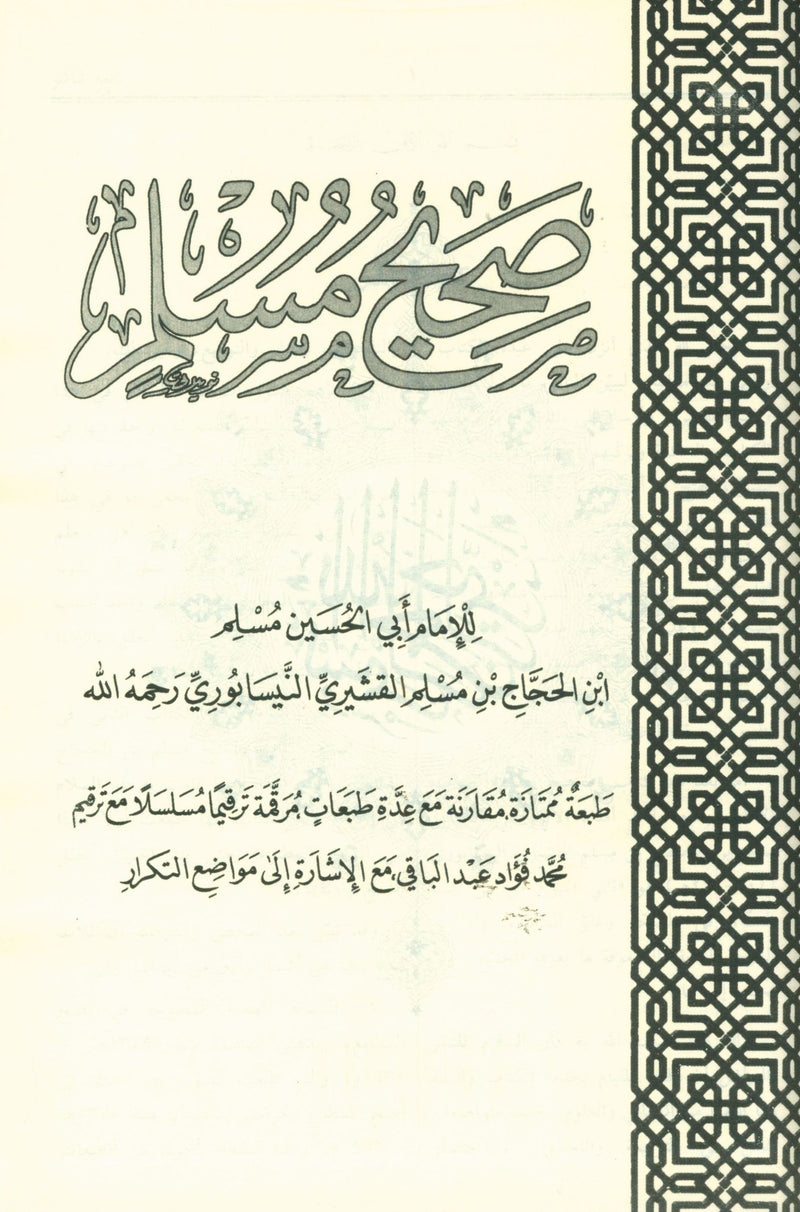 صَحِيحُ مُسْلِم
لِلْإِمَامِ أَبِي الحُسَين مُسْلِم
ابْنِ الحَجَّاجِ بْنِ مُسْلِمِ القُشَيرِيِّ النَّيسَابُورِيِّ رَحِمَهُ اللّٰه
طَبعَةٌ مُمتَازَة، مُقَارَنَة مَعَ عِدَّةِ طَبَعَاتٍ، مُرَقَّمَة تَرقِيمًا مُسَلسَلًا مَعَ تَرقِيم
مُحَمَّد فُؤَاد عَبْد البَاقِي، مَعَ الإِشَارَةِ إِلَىٰ مَوَاضِعِ التكرَارِ